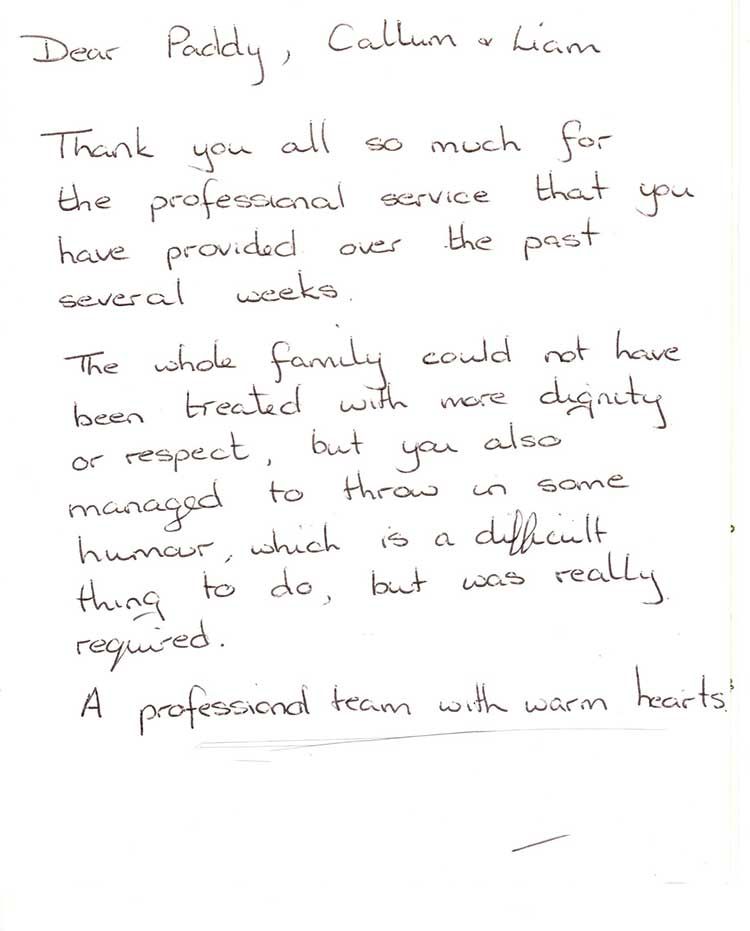 Dear Paddy, Callum & Liam
Thank you all so much for
the professional service that you
have provided over the past
several weeks.
The whole family could not have
been treated with more dignity
or respect, but you also
managed to throw in some
humour, which is a difficult
thing to do, but was really
required.
A professional team with warm hearts.